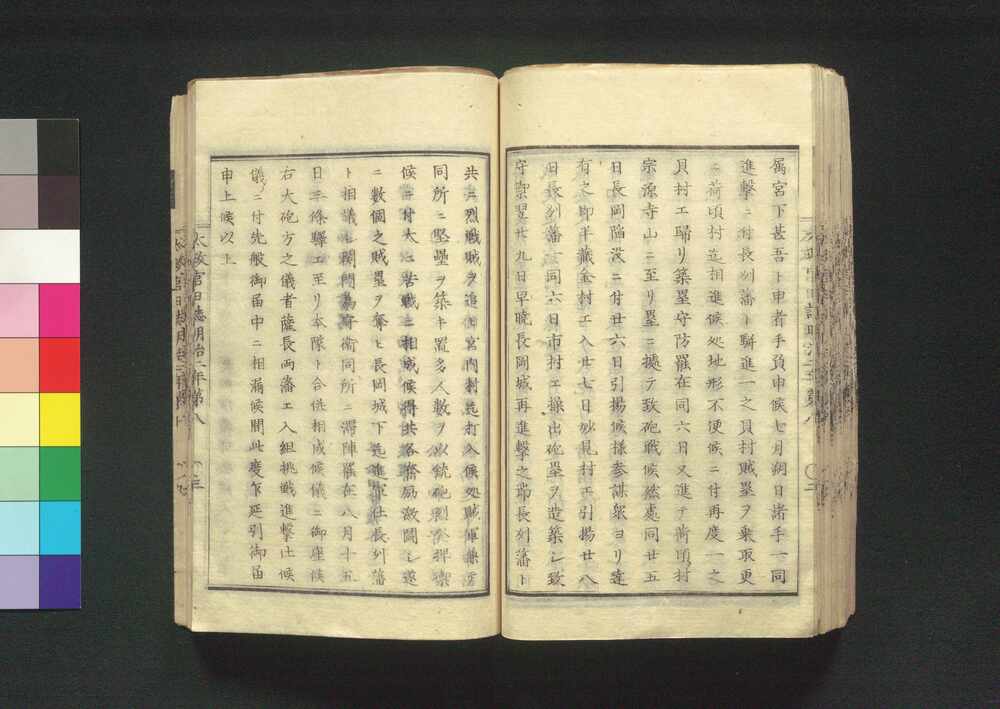 属宮下甚吾ト申者手負申候七月朔日諸手一同
進撃ニ付長列藩ト駢進一之貝村賊塁ヲ乗取更
ニ荷頃村迄相進候処地形不便候ニ付再度一之
貝村エ帰リ築塁守防罷在同六日又進テ荷頃村
宗源寺山ニ至リ塁ニ據テ致砲戦候然處同廿五
日長岡陥没ニ付廿六日引揚候様参謀衆ヨリ達
有之即半藏金村エ入廿七日妙見村エ引揚廿八
日長列藩一同六日市村エ操出砲塁ヲ造築シ致
守禦翌廿九日早暁長岡城再進撃之節長列藩ト
共ニ烈戦賊ヲ追ヒ宮内村迄打入候処賊軍兼
同所ニ堅壘ヲ築キ置多人數ヲ以銃砲劇発拝禦
候ニ付大ニ苦戦ニ相成候得共各奮励激闘シ遂
ニ數個之賊塁ヲ奪ヒ長岡城下迄進軍仕長列藩
ト相議シ関門為守衛同所ニ滞陣罷在八月十五
日三條驛エ至リ本隊ト合併相成候儀ニ御座候
右大砲方之儀者薩長両藩エ入組挑戦進撃仕候
儀ニ付先般御届中ニ相漏候間此度乍延引御届
申上候以上
太政官日誌明治二年第八
三